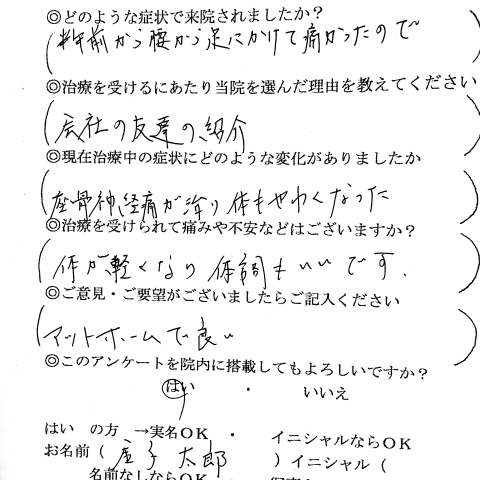 ◎どのような症状で来院されましたか？
半年前から腰から足にかけて痛かったので
◎治療を受けるにあたり当院を選んだ理由を教えてください
会社の友達の紹介
◎現在治療中の症状にどのような変化がありましたか
座骨神経痛が治り体もやわくなった
◎治療を受けられて痛みや不安などはございますか？
体が軽くなり体調もいいです.
◎ご意見・ご要望がございましたらご記入ください
アットホームで良い
◎このアンケートを院内に搭載してもよろしいですか？
はい ・ いいえ
はい の方 →実名OK ・ イニシャルならOK
お名前（ 太郎 ）イニシャル（
名前なしならOK